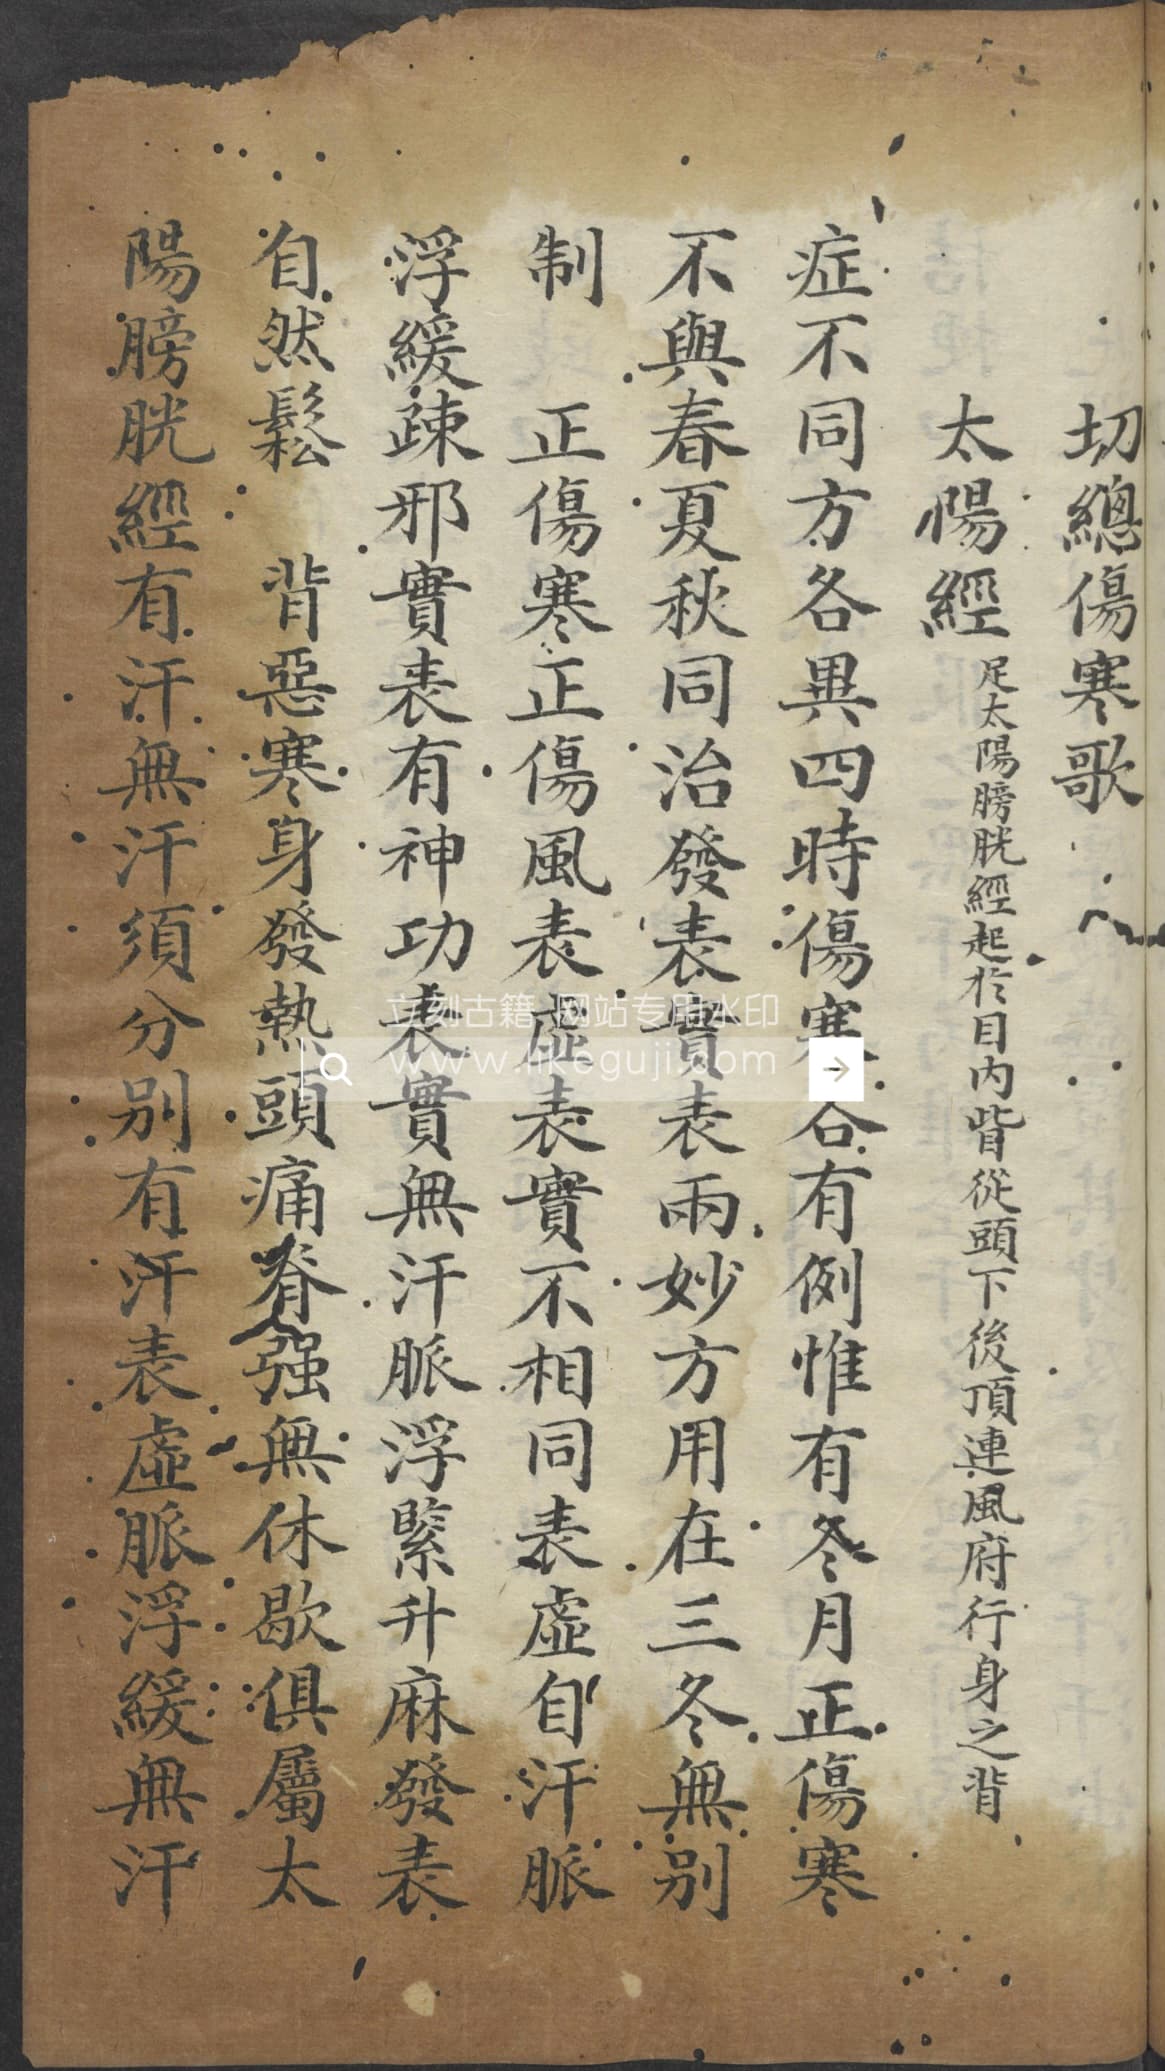 切總傷寒歌
太陽經 足太陽膀胱經起於目内眥從頭下後頂連風府行身之背
症不同方各異四時傷寒各有例惟有冬月正傷寒
不與春夏秋同治發表實表兩妙方用在三冬無别
制 正傷寒正傷風表虛表實不相同表虛自汗脈
浮緩疎邪實表有神功表實無汗脈浮緊升麻發表
自然鬆 背惡寒身發熱頭痛脊强無休歇俱屬太
陽膀胱經有汗無汗須分别有汗表虛脈浮緩無汗
立刻古籍 网站专用水印
www.likeguji.com